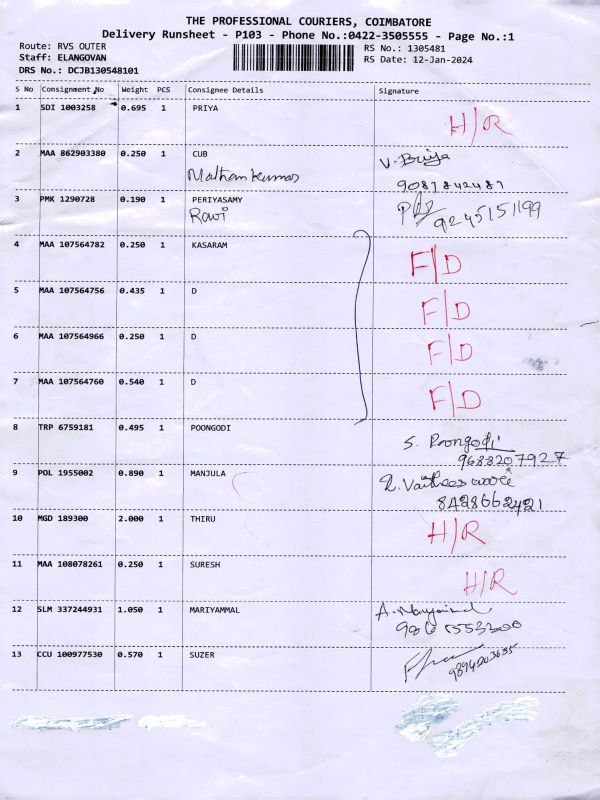 THE PROFESSIONAL COURIERS, COIMBATORE
Delivery Runsheet - P103 - Phone No.:0422-3505555 - Page No.:1
Route: RVS OUTER
Staff: ELANGOVAN
DRS No.: DCJB130548101
RS No.: 1305481
RS Date: 12-Jan-2024
S No Consignment No Weight PCS Consignee Details Signature
1 SDI 1003258 0.695 1 PRIYA H/R
2 MAA 862903380 0.250 1 CUB
Mathan kumar
9087842487
3 PMK 1290728 0.190 1 PERIYASAMY
Ravi 9245151199
4 MAA 107564782 0.250 1 KASARAM F/D
5 MAA 107564756 0.435 1 D F/D
6 MAA 107564966 0.250 1 D F/D
7 MAA 107564760 0.540 1 D F/D
8 TRP 6759181 0.495 1 POONGODI
S. Poongodi
9688207927
9 POL 1955002 0.890 1 MANJULA
8428662421
10 MGD 189300 2.000 1 THIRU H/R
11 MAA 108078261 0.250 1 SURESH H/R
12 SLM 337244931 1.050 1 MARIYAMMAL
13 CCU 100977530 0.570 1 SUZER
9894203635